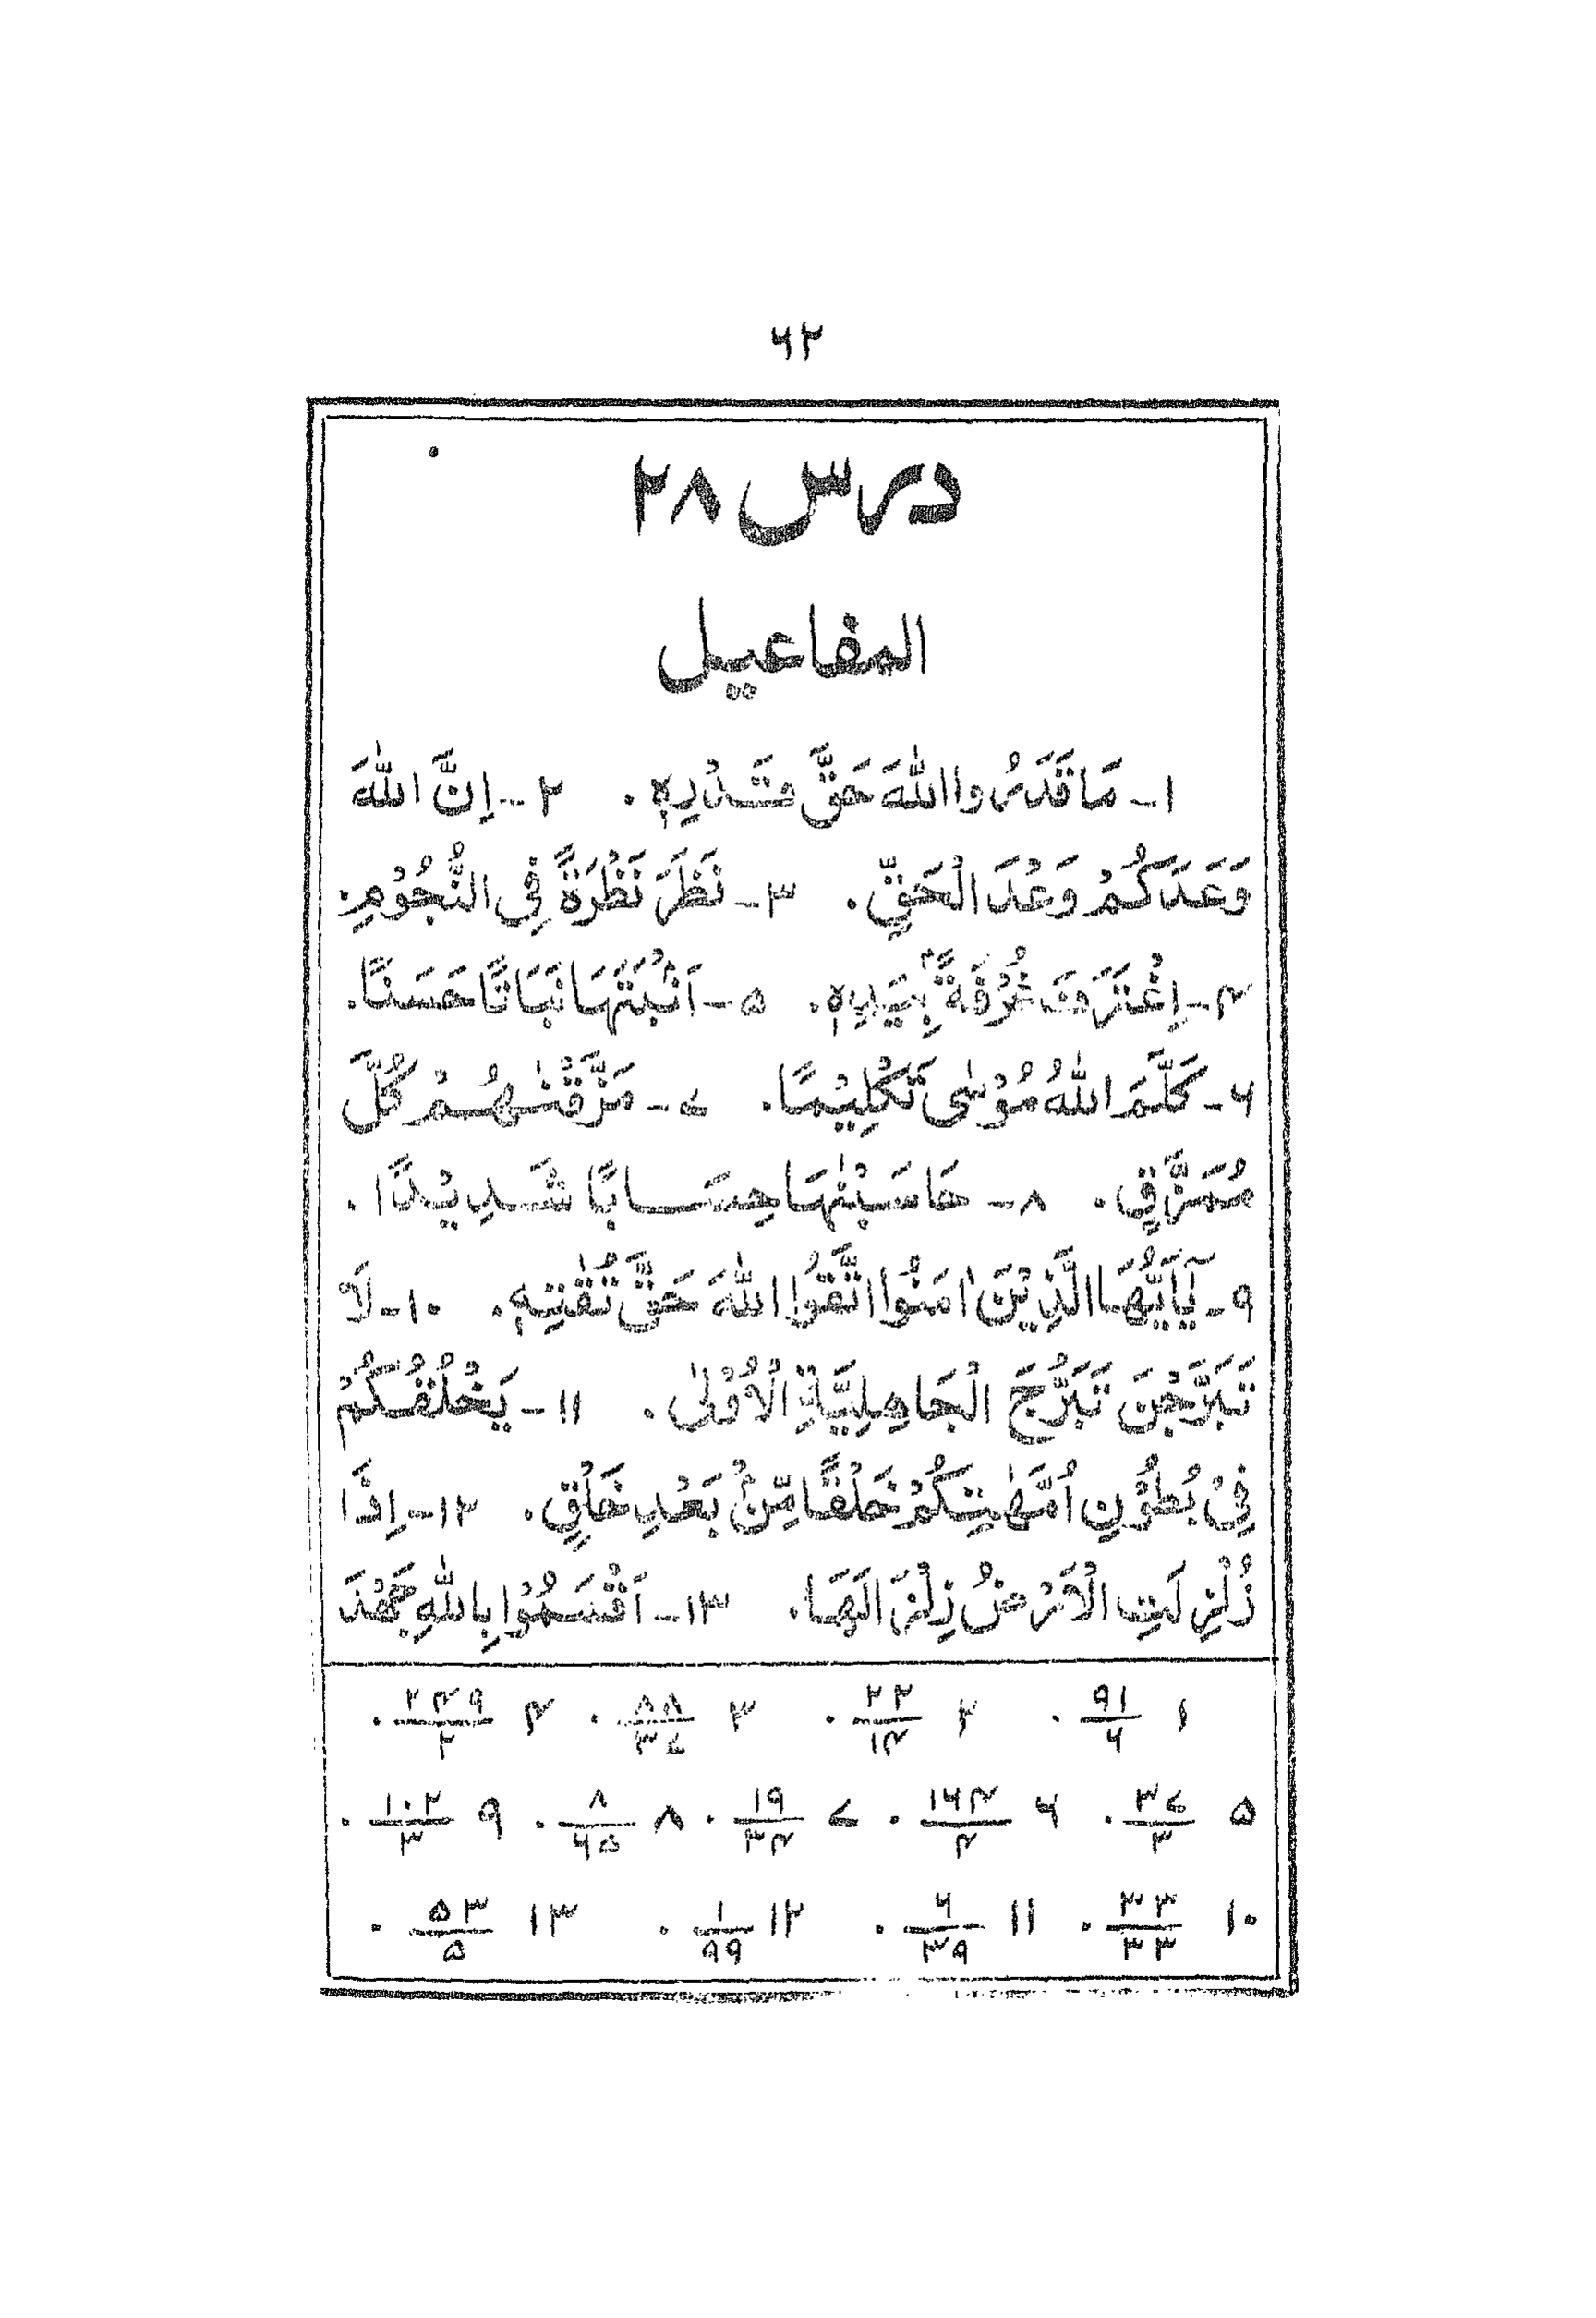 ۶۲
درس ۲۸
المفاعيل
۱- مَا قَدَرُوا اللّٰهَ حَقَّ قَدْرِهٖ. ۲- اِنَّ اللّٰهَ
وَعَدَكُمْ وَعْدَ الْحَقِّ. ۳- نَظَرَ نَظْرَةً فِى النُّجُوْمِ.
۴- اِغْتَرَفَ غُرْفَةًۢ بِيَدِهٖ. ۵- اَنْۢبَتَهَا نَبَاتًا حَسَنًا.
۶- كَلَّمَ اللّٰهُ مُوْسٰى تَكْلِيْمًا. ۷- مَزَّقْنٰهُمْ كُلَّ
مُمَزَّقٍ. ۸- حَاسَبْنٰهَا حِسَابًا شَدِيْدًا.
۹- يٰۤاَيُّهَا الَّذِيْنَ اٰمَنُوا اتَّقُوا اللّٰهَ حَقَّ تُقٰتِهٖ. ۱۰- لَا
تَبَرَّجْنَ تَبَرُّجَ الْجَاهِلِيَّةِ الْاُوْلٰى. ۱۱- يَخْلُقُكُمْ
فِىْ بُطُوْنِ اُمَّهٰتِكُمْ خَلْقًا مِّنْۢ بَعْدِ خَلْقٍ. ۱۲- اِذَا
زُلْزِلَتِ الْاَرْضُ زِلْزَالَهَا. ۱۳- اَقْسَمُوْا بِاللّٰهِ جَهْدَ
۱ ۹۱/۶. ۲ ۲۲/۱۴. ۳ ۸۸/۳۷. ۴ ۲۴۹/۲.
۵ ۳۷/۳. ۶ ۱۶۴/۴. ۷ ۱۹/۳۴. ۸ ۸/۶۵. ۹ ۱۰۲/۳.
۱۰ ۳۳/۳۳. ۱۱ ۶/۳۹. ۱۲ ۱/۹۹. ۱۳ ۵۳/۵.